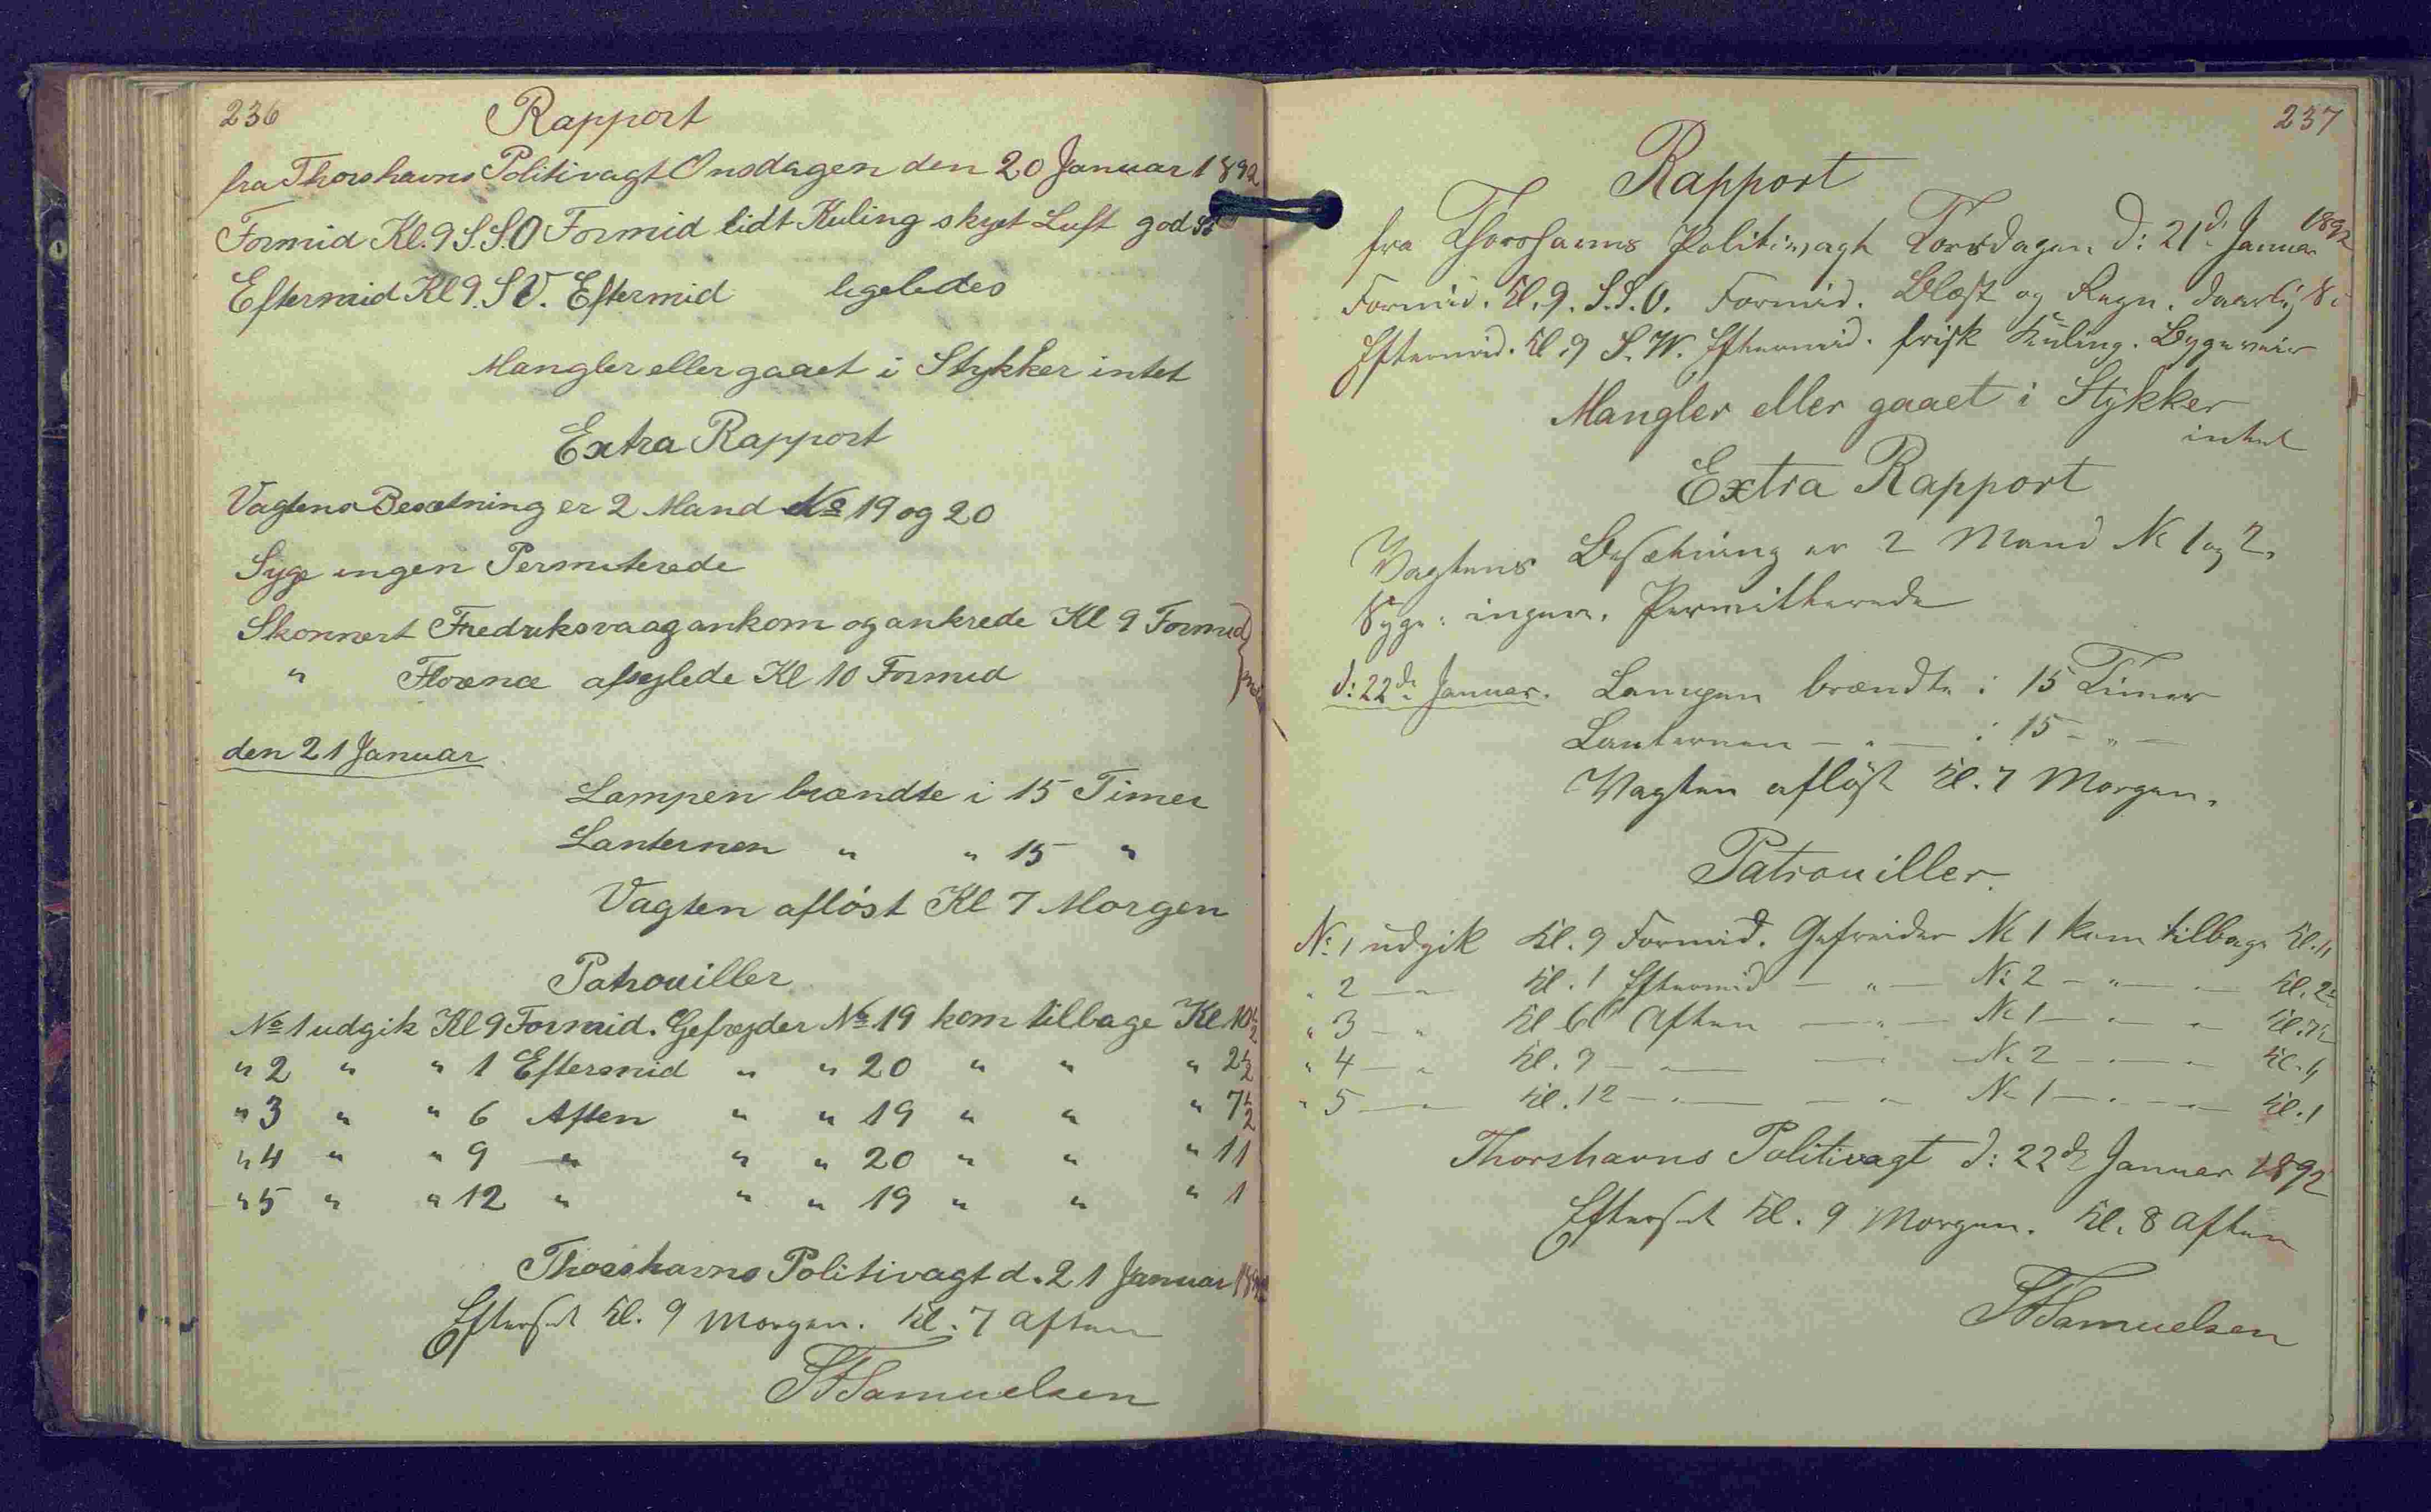 236
Rapport
fra Thorshavns Politivagt Onsdagen den 20 Januar 1892
Formid Kl. 9 S.S.O Formid lidt Kuling skyet Luft god
Eftermid Kl 9. S V. Eftermid ligeledes
Mangler eller gaaet i Stykker intet
Extra Rapport
Vagtens Besætning er 2 Mand No 19 og 20
Syge ingen Permiterede
Skonnert Fredriksvaag ankom og ankrede Kl 9 Formid
" Florence afsejlede Kl 10 Formid
den 21 Januar
Lampen brændte i 15 Timer
Lanternen " " 15 "
Vagten afløst Kl 7 Morgen
Patrouiller
No 1 udgik Kl 9 Formid. Gefrejder No 19 kom tilbage Kl 10½
" 2 " " 1 Eftermid " " 20 " " " 2½
" 3 " " 6 Aften " " 19 " " " 7½
" 4 " " 9 " " " 20 " " " 11
" 5 " " 12 " " " 19 " " " 1
Thorshavns Politivagt d. 21 Januar
Efterset Kl. 9 Morgen. Kl. 7 Aften
Samuelsen
237
Rapport
fra Thorshavns Politivagt Torsdagen d: 21de Januar 1892
Formid. Kl. 9. S.S.O. Formid. Blæst og Regn. daarlig
Eftermid. Kl. 9 S.W. Eftermid. frisk Kuling. Bygeveir
Mangler eller gaaet i Stykker
intet
Extra Rapport
Vagtens Besætning er 2 Mand No 1 og 2.
Syge: ingen. Permitterede
d: 22de Januar. Lampen brændte i 15 Timer
Lanternen — " — i 15 — " —
Vagten afløst Kl. 7 Morgen.
Patrouiller.
No 1 udgik Kl. 9 Formid. Gefreider No 1 kom tilbage Kl. 11
" 2 — " Kl. 1 Eftermid — " — No 2 — " — " — Kl. 2½
" 3 — " Kl 6 Aften — " — No 1 — " — " — Kl. 7½
" 4 — " Kl. 9 — " — " — No 2 — " — " — Kl. 11
" 5 — " Kl. 12 — " — " — No 1 — " — " — Kl. 1
Thorshavns Politivagt d: 22de Januar 1892
Efterset Kl. 9 Morgen. Kl. 8 Aften
Samuelsen